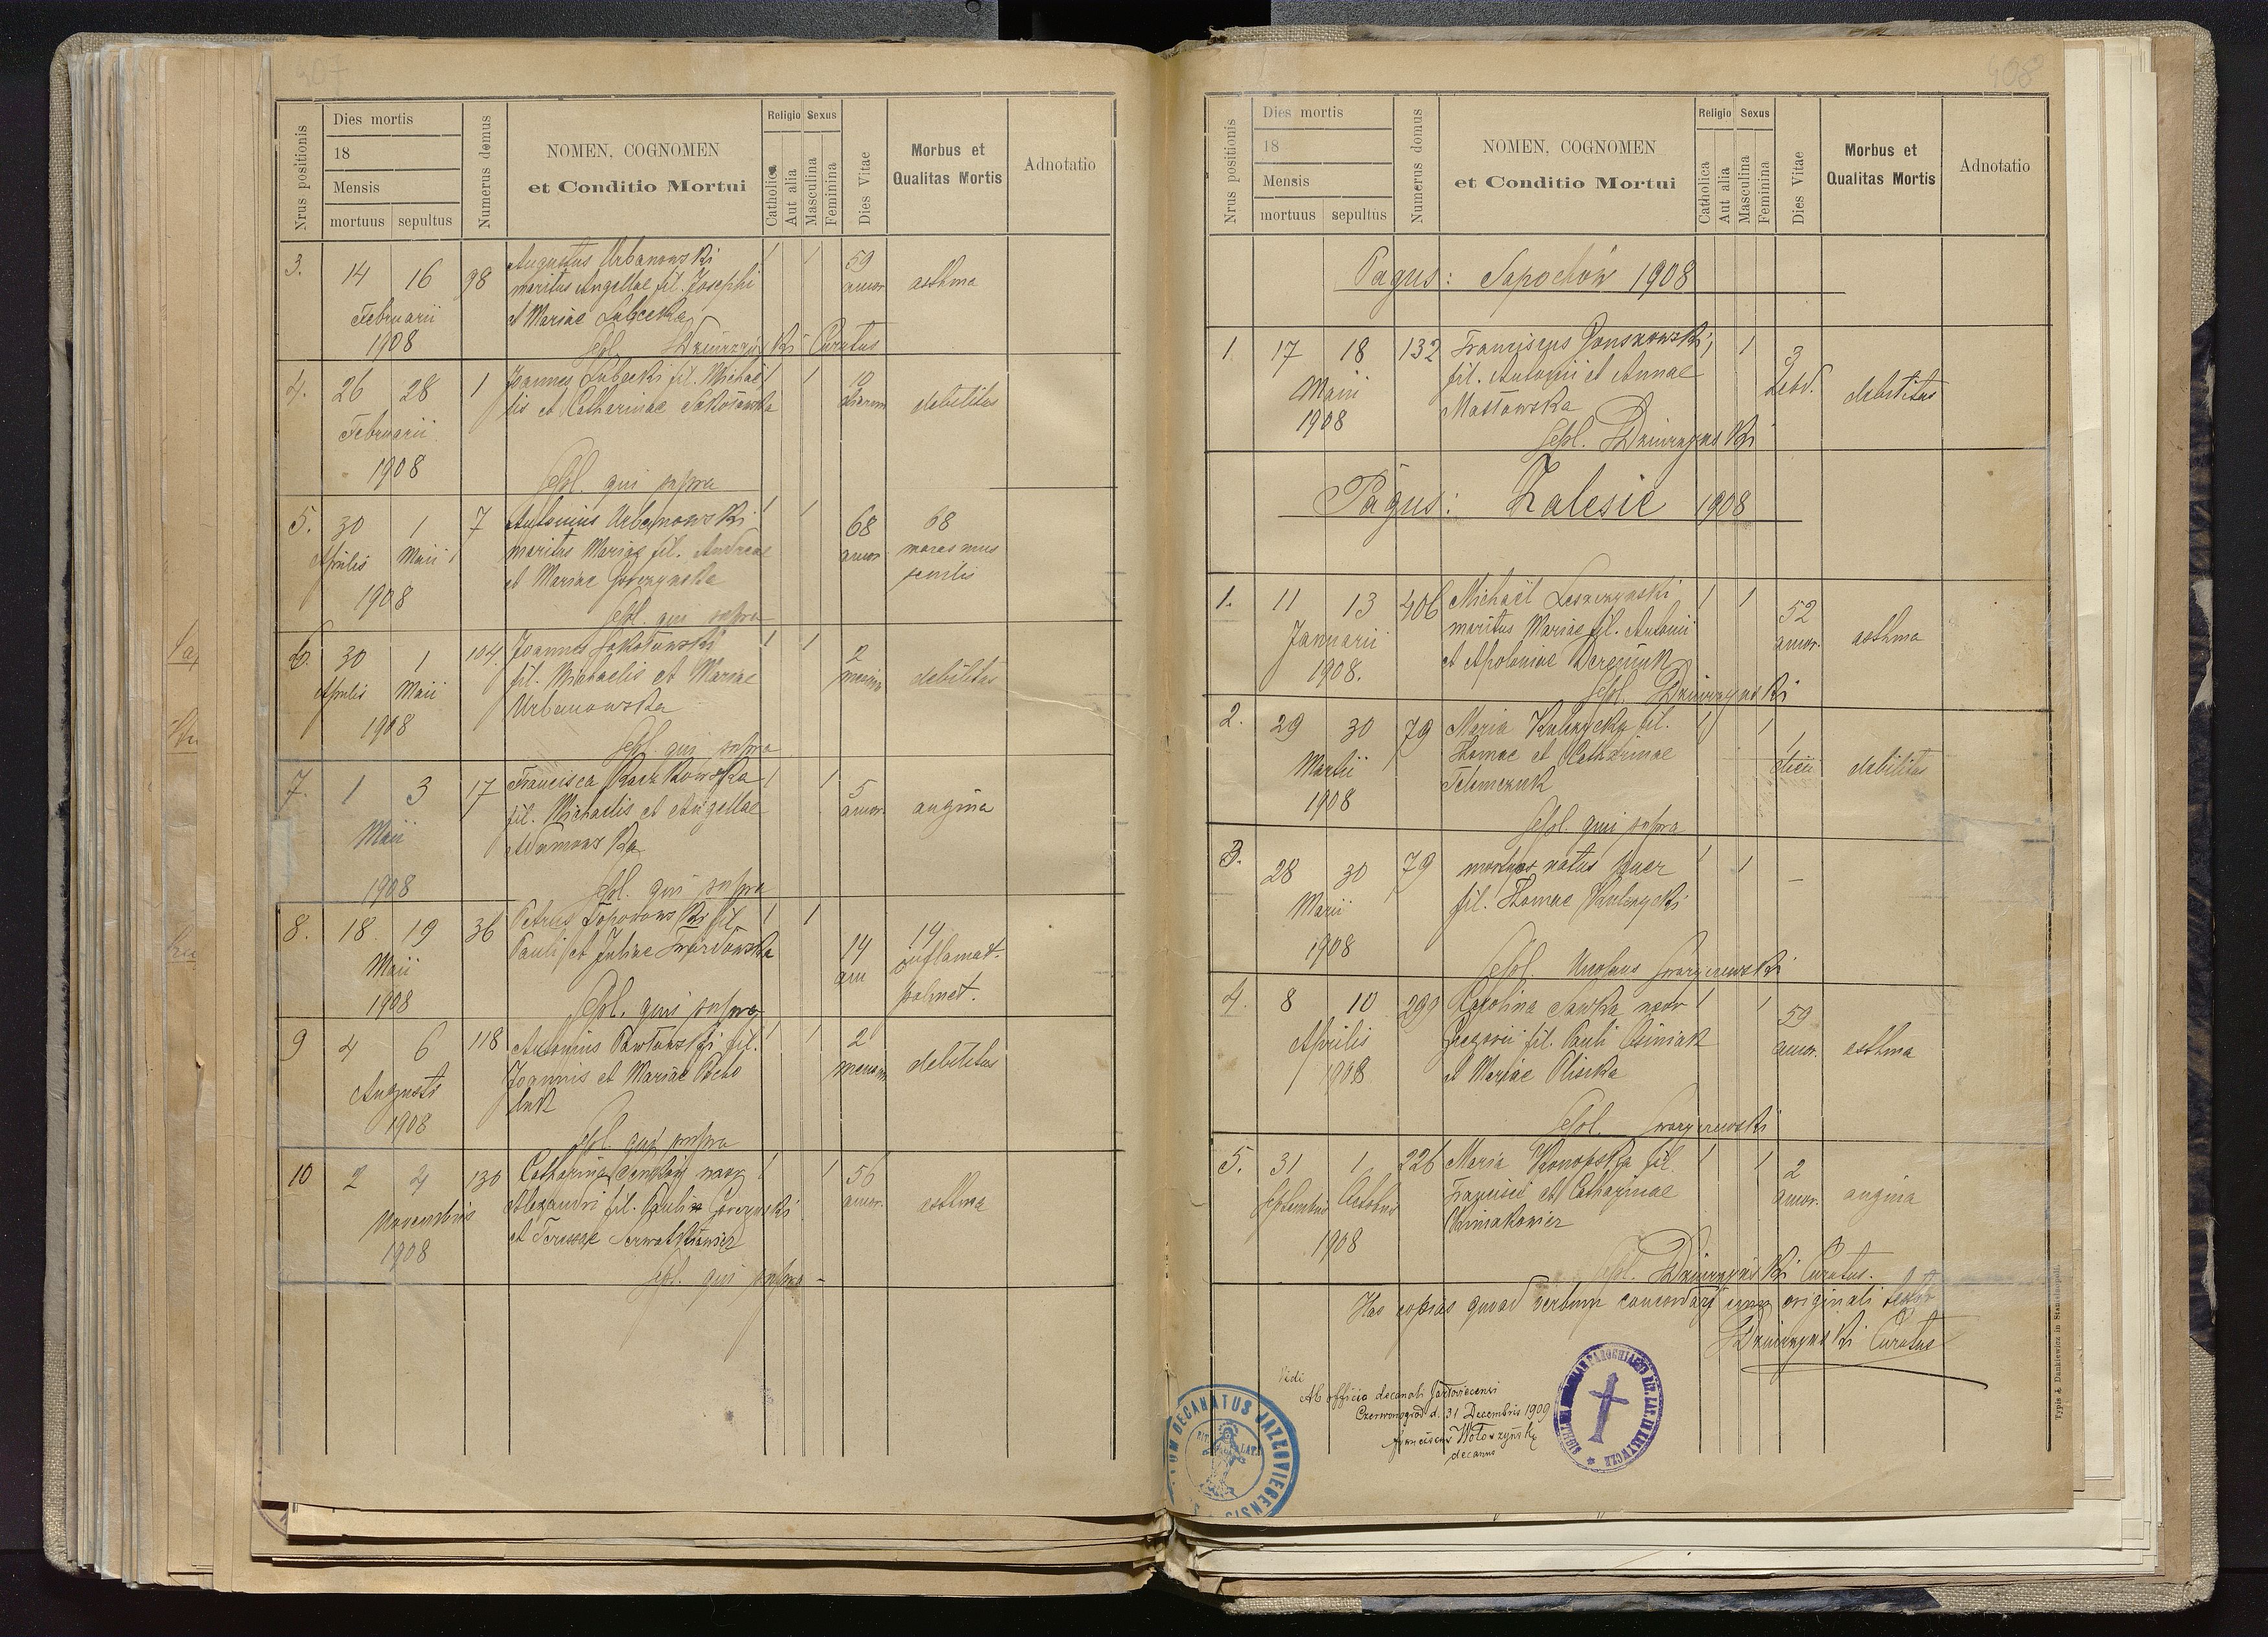 407
Nrus positionis
Dies mortis
18
Mensis
mortuus sepultus
Numerus domus
NOMEN, COGNOMEN
et Conditio Mortui
Religio Sexus
Catholica
Aut alia
Masculina
Feminina
Dies Vitae
Morbus et
Qualitas Mortis
Adnotatio
3. 14 16 98 Augustus Urbanowski 1 1 59
maritus Angellae fil. Josephi annor asthma
Februarii et Mariae Lubecka
1908 Sepl. Dziurzyński Curatus
4. 26 28 1 Joannes Lubecki fil. Michae 1 1 10
lis et Catharinae Sokołowska dierum debilitas
Februarii
1908 Sepl. qui supra
5. 30 1 7 Antonius Urbanowski 1 1 68 68
Aprilis Maii maritus Mariae fil. Andreae annor. marasmus
1908 et Mariae Gorczynska senilis
Sepl. qui supra
6. 30 1 104. Joannes Sokołowski 1 1 2
Aprilis Maii fil. Michaelis et Mariae mensium debilitas
1908 Urbanowska
Sepl. qui supra
7. 1 3 17 Francisca Raczkowska 1 1 5
Maii fil. Michaelis et Angellae annor. angina
Adamowska
1908 Sepl. qui supra
8. 18 19 36 Petrus Topodowski fil 1 1 14 14
Maii Pauli et Juliae Twardowska an inflamat.
1908 Sepl. qui supra pulmot.
9 4 6 118 Antonius Pawłowski fil. 1 1 2
Augusti Joannis et Mariae Pocho mensium debilitas
1908 luk
Sepl. qui supra
10 2 4 130 Catharina uxor 1 1 56
Novembris Alexandri fil. Pauli Gorczynski annor. asthma
1908 et Teressae Serwatkiewicz
Sepl. qui supra -
408
Nrus positionis
Dies mortis
18
Mensis
mortuus sepultus
Numerus domus
NOMEN, COGNOMEN
et Conditio Mortui
Religio Sexus
Catholica
Aut alia
Masculina
Feminina
Dies Vitae
Morbus et
Qualitas Mortis
Adnotatio
Pagus: Sapochów 1908
1 17 18 132 Franciscus Gonszowski, 1 1 3
Maii fil. Antonii et Annae hebd. debilitas
1908 Masłowska
Sepl. Dziurzyński
Pagus: Zalesie 1908
1. 11 13 406 Michael Leszczynski 1 1 52
Januarii maritus Mariae fil. Antonii annor. asthma
1908. et Apoloniae Dereniuk
Sepl. Dziurzyński
2. 29 30 79 Maria Kulczycka fil. 1 1 1
Martii Thomae et Catharinae diei debilitas
1908 Telemczuk
Sepl. qui supra
3. 28 30 79 mortuus natus puer 1 1 —
Marii fil. Thomae Kulczycki
1908
Sepl. Nicolaus
4. 8 10 299 Carolina Sawka uxor 1 1 59
Aprilis Gregorii fil. Pauli Osiniak annor. asthma
1908 et Mariae Olisska
Sepl.
5. 31 1 226 Maria Konopska fil. 1 1 2
Septembris Octobris Francisci et Catharinae annor. angina
1908
Sepl. Dziurzyński Curatus.
Has copias quoad verbum concordare cum originali testor
Dziurzyński Curatus
Vidi
Ab officio decanali Jazłoviecensi
Czerwonogród d. 31 Decembris 1909
Franciscus Wołoszyński
decanus
DECANATUS JAZŁOVIECENSIS
Typis & Dankiewicz in Stanislaopoli.